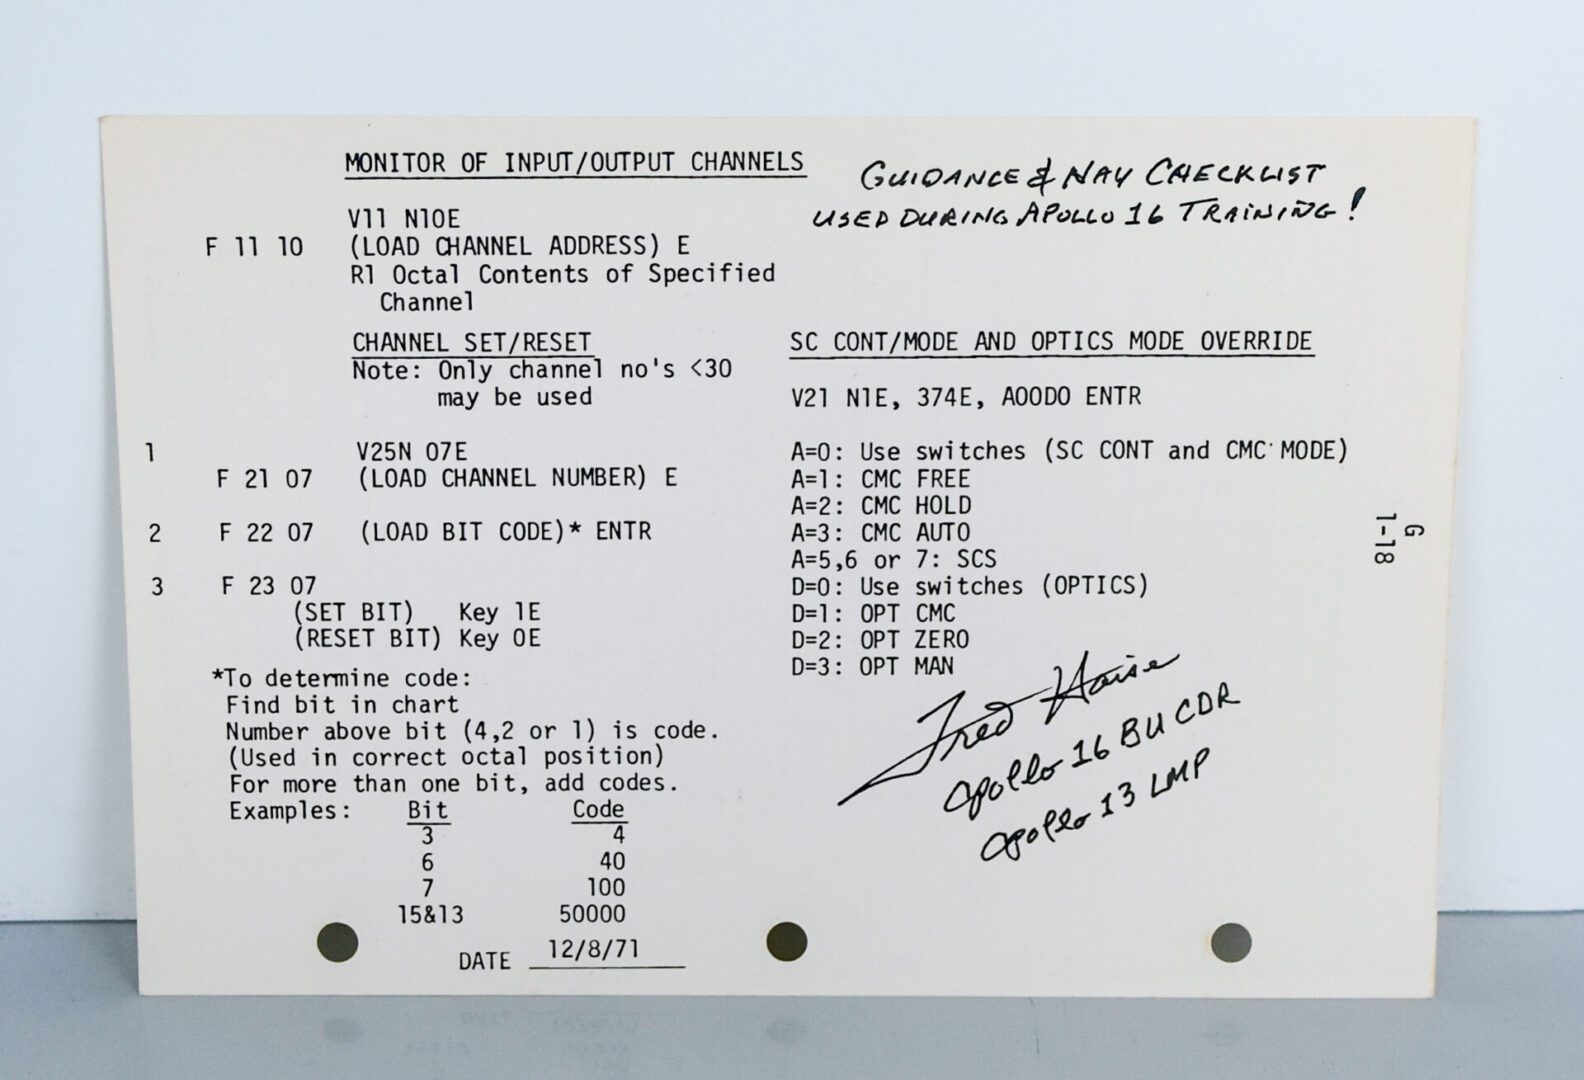 MONITOR OF INPUT/OUTPUT CHANNELS
GUIDANCE & NAV CHECKLIST
USED DURING APOLLO 16 TRAINING!
V11 N10E
F 11 10 (LOAD CHANNEL ADDRESS) E
R1 Octal Contents of Specified
Channel
CHANNEL SET/RESET
Note: Only channel no's <30
may be used
1 V25N 07E
F 21 07 (LOAD CHANNEL NUMBER) E
2 F 22 07 (LOAD BIT CODE)* ENTR
3 F 23 07
(SET BIT) Key 1E
(RESET BIT) Key 0E
*To determine code:
Find bit in chart
Number above bit (4,2 or 1) is code.
(Used in correct octal position)
For more than one bit, add codes.
Examples: Bit Code
3 4
6 40
7 100
15&13 50000
DATE 12/8/71
SC CONT/MODE AND OPTICS MODE OVERRIDE
V21 N1E, 374E, A00D0 ENTR
A=0: Use switches (SC CONT and CMC MODE)
A=1: CMC FREE
A=2: CMC HOLD
A=3: CMC AUTO
A=5,6 or 7: SCS
D=0: Use switches (OPTICS)
D=1: OPT CMC
D=2: OPT ZERO
D=3: OPT MAN
Fred Haise
Apollo 16 BU CDR
Apollo 13 LMP
G
1-18